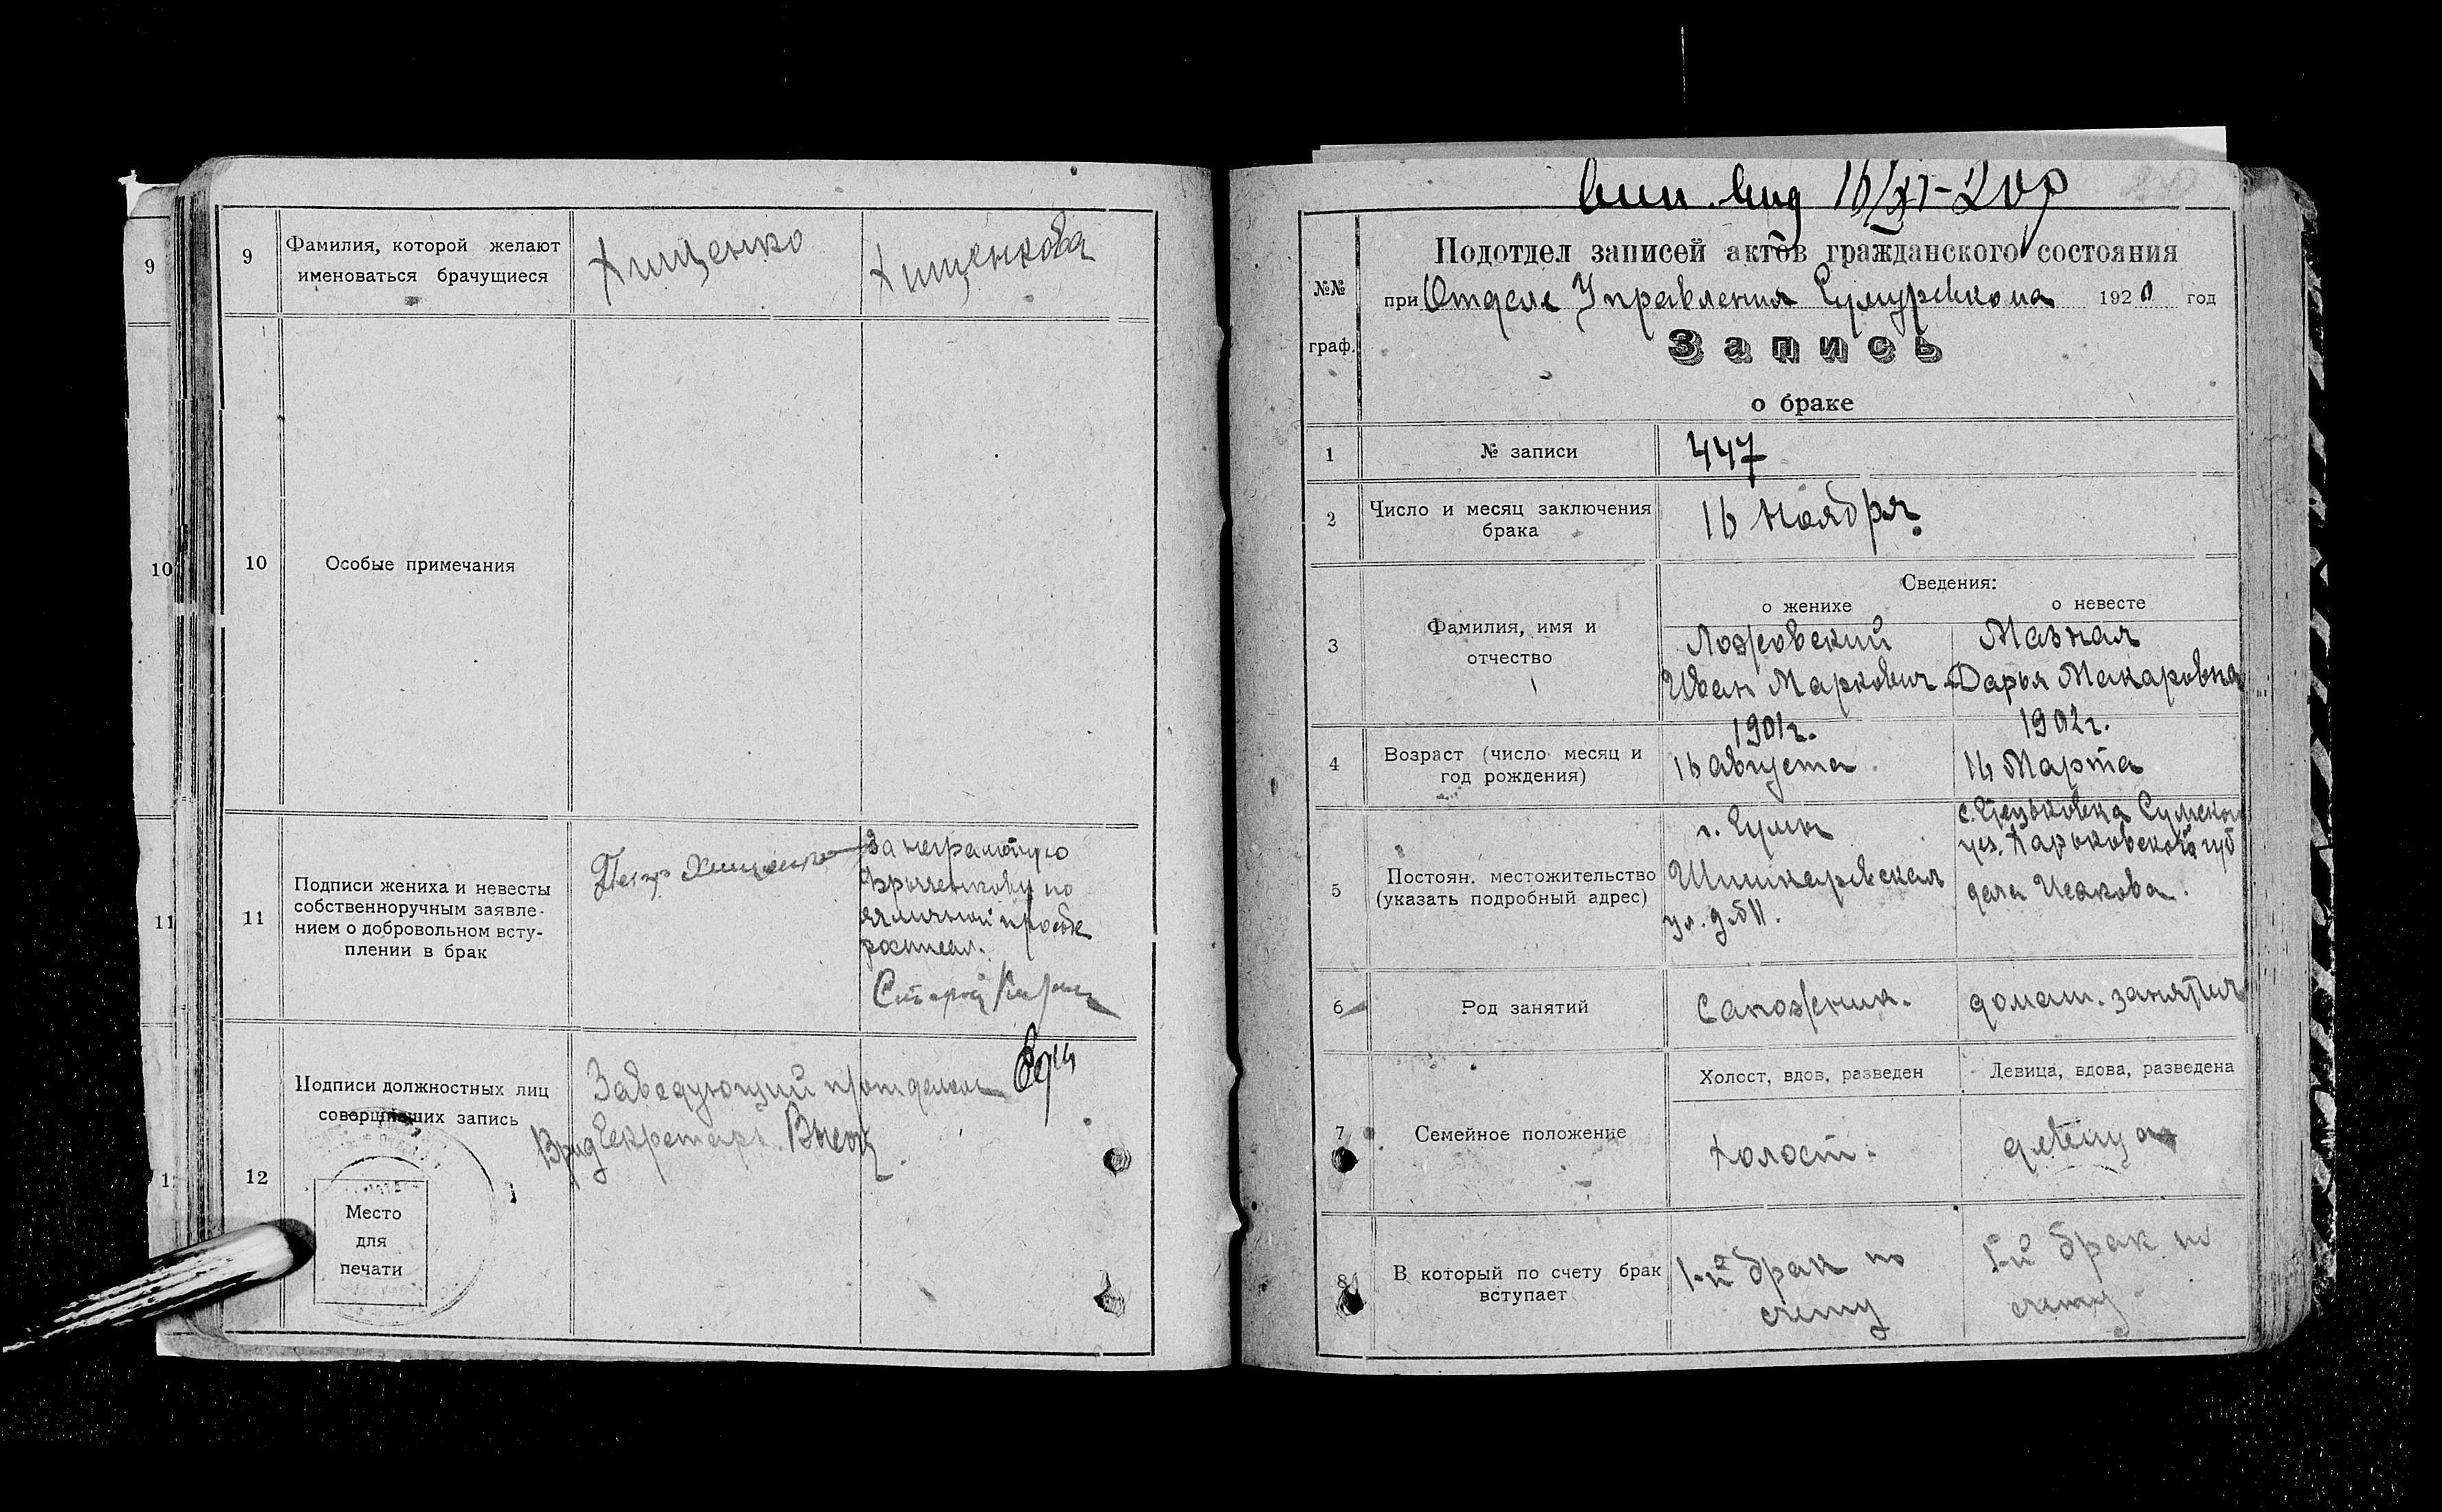 9
10
11
9
Фамилия, которой желают
именоваться брачущиеся
Хищенко
Хищенкова
10
Особые примечания
11
Подписи жениха и невесты
собственноручным заявле-
нием о добровольном всту-
плении в брак
Петр Хищенко
За неграмотную
по
личной прозбе
росписал.
12
Подписи должностных лиц
совершивших запись
Заведующий п/отделом
Врид Секретарь
Место
для
печати
вид 16/XI-20 г
№№
граф.
Подотдел записей актов гражданского состояния
при Отделе Управления Сумуревкома 1920 год
Запись
о браке
1
№ записи
447
2
Число и месяц заключения
брака
16 Ноября
Сведения:
о женихе
о невесте
3
Фамилия, имя и
отчество
Ложовский
Иван Маркович
Мазная
Дарья Макаровна
4
Возраст (число месяц и
год рождения)
1901г.
16 Августа
1902г.
16 Марта
5
Постоян. местожительство
(указать подробный адрес)
г. Сумы
ул. д № 11.
с. Сумской
уез. Харьковской губ
дача Исакова.
6
Род занятий
Сапожник.
домаш. занятия
7
Семейное положение
Холост, вдов, разведен
Девица, вдова, разведена
Холост.
девица
8
В который по счету брак
вступает
1-й брак по
счету
1-й брак по
счету